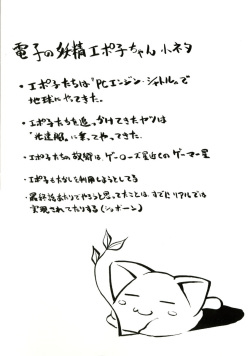 電子の妖精エポ子ちゃん 小ネタ
・エポ子たちは『PCエンジン・シャトル』で
地球にやってきた。
・エポ子たちを追っかけてきたヤツは
"光速船"に乗ってやってきた。
・エポ子たちの故郷はゲーローズ星近くのゲーマー星
・エポ子も大なしを利用しようとしてる
・最終話あたりでやろうと思ってたことは、すでにリアルでは
実現されてたりする(ショボーン)